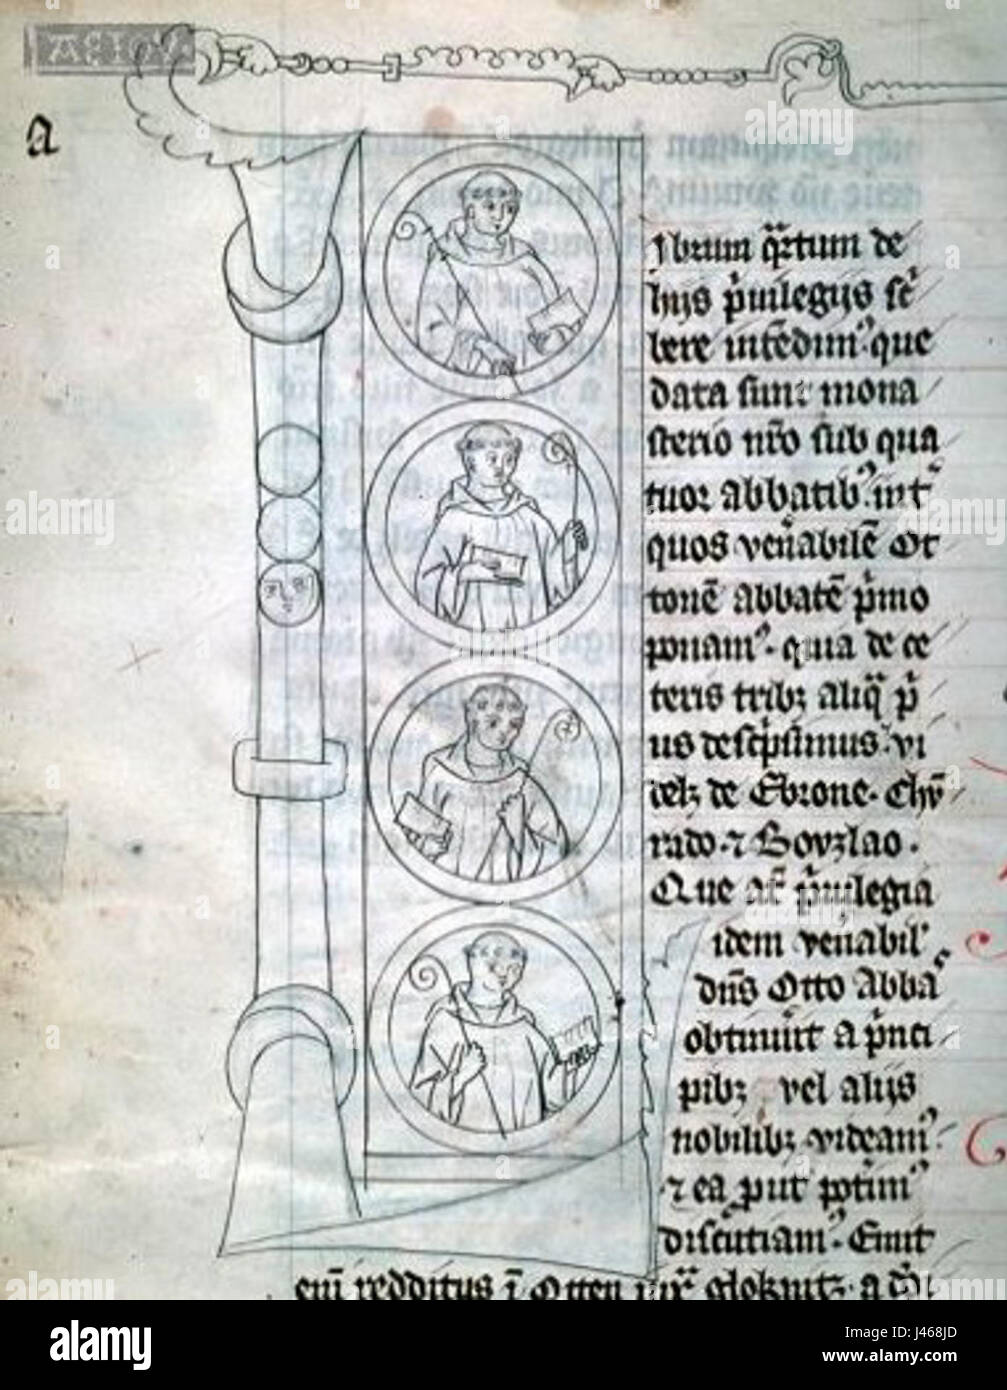 a
ibrum q̄rtum de
hijs p̄uilegijs sc̄
bere intēdim9 que
data sunt mona
sterio nr̄o sub qua
tuor abbatib9 int̄
quos ven̄abilē Ot
tonē abbatē p̄mo
ponam9 quia de ce
teris tribꝫ aliq̄ p̄
us desc̄psimus vi
delꝫ de Ebrone
rado ⁊ Boyzlao
Que at̄ p̄uilegia
idem ven̄abil'
dn̄s Otto Abba
obtinuīt a p̄nci
pibꝫ vel alijs
nobilibꝫ videam9
⁊ ea put potim9
discutiam9 Emit
enī redditus ī Otten
alamy
Image ID: J468JD
www.alamy.com